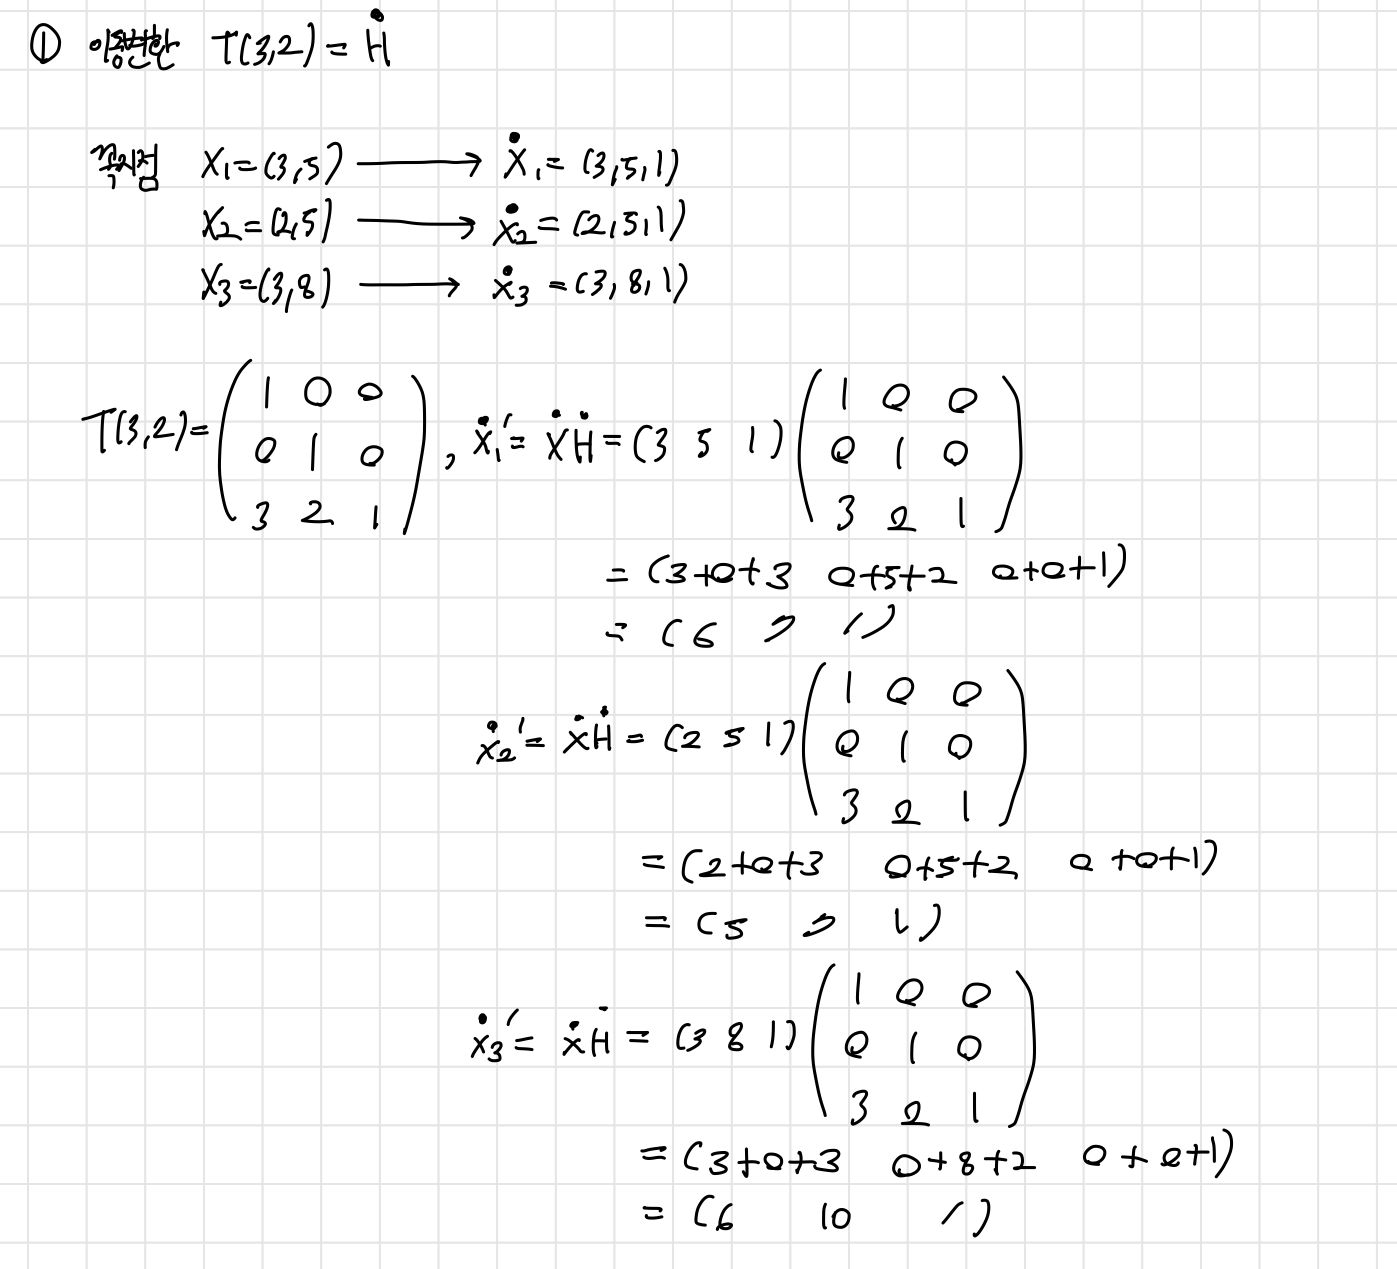 ① 이동변환 T(3,2) = Ḣ
꼭지점 X₁=(3,5) ⟶ Ẋ₁= (3,5,1)
X₂=(2,5) ⟶ Ẋ₂= (2,5,1)
X₃=(3,8) ⟶ Ẋ₃ =(3,8,1)
T(3,2)= (1 0 0 / 0 1 0 / 3 2 1), Ẋ₁′= ẊḢ = (3 5 1) (1 0 0 / 0 1 0 / 3 2 1)
= (3+0+3 0+5+2 0+0+1)
= (6 7 1)
Ẋ₂′= ẊḢ = (2 5 1) (1 0 0 / 0 1 0 / 3 2 1)
= (2+0+3 0+5+2 0+0+1)
= (5 7 1)
Ẋ₃′= ẊḢ = (3 8 1) (1 0 0 / 0 1 0 / 3 2 1)
= (3+0+3 0+8+2 0+0+1)
= (6 10 1)